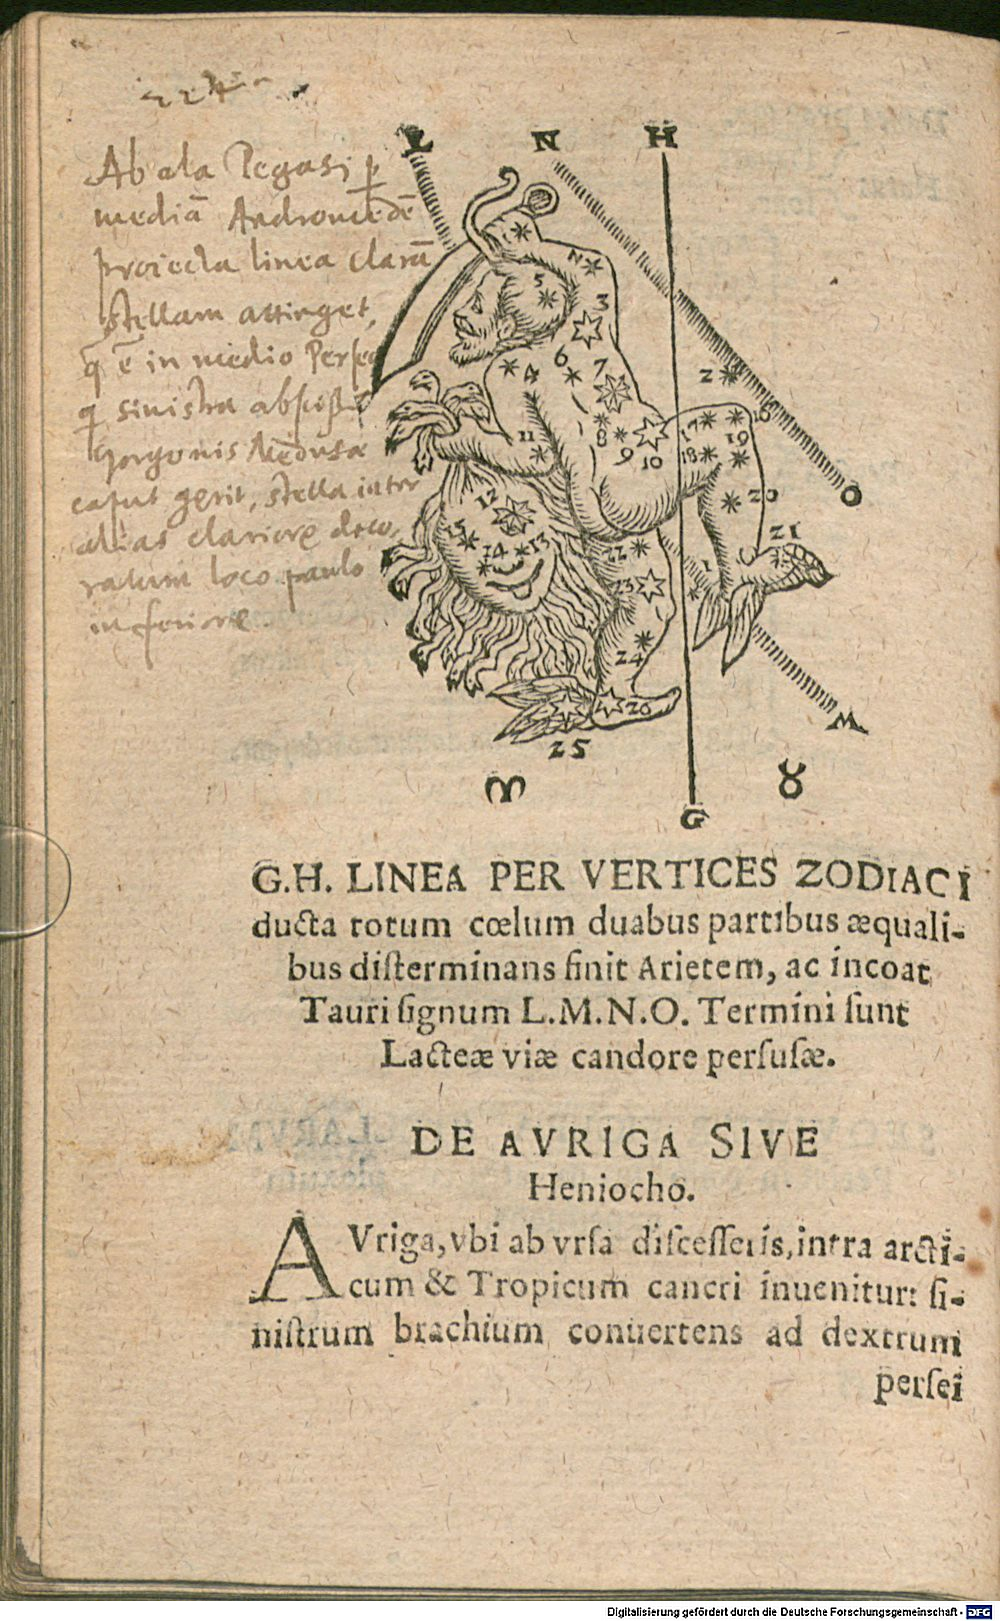 224
Ab ala Pegasi p̱
mediā Andromedē
proiecta linea clarā
stellam attinget,
q̄ ē in medio Persei
q sinistra
Gorgonis Medusæ
caput gerit, stella inter
alias clariore deco-
ratum loco paulo
inferiore
L N H
1
2
5
3
4 6 7
2
11 8 9 10 17 16
18 19
12 20
15 14 13 22 21
23 1
24
26
25
O
M
♈ ♉
G
G.H. LINEA PER VERTICES ZODIACI
ducta totum cœlum duabus partibus æquali-
bus disterminans finit Arietem, ac incoat
Tauri signum L.M.N.O. Termini ſunt
Lacteæ viæ candore perſuſæ.
DE AVRIGA SIVE
Heniocho.
AVriga, vbi ab vrſa diſceſſeris, intra arcti-
cum & Tropicum cancri inuenitur: ſi-
niſtrum brachium conuertens ad dextrum
perſei
Digitalisierung gefördert durch die Deutsche Forschungsgemeinschaft - DFG